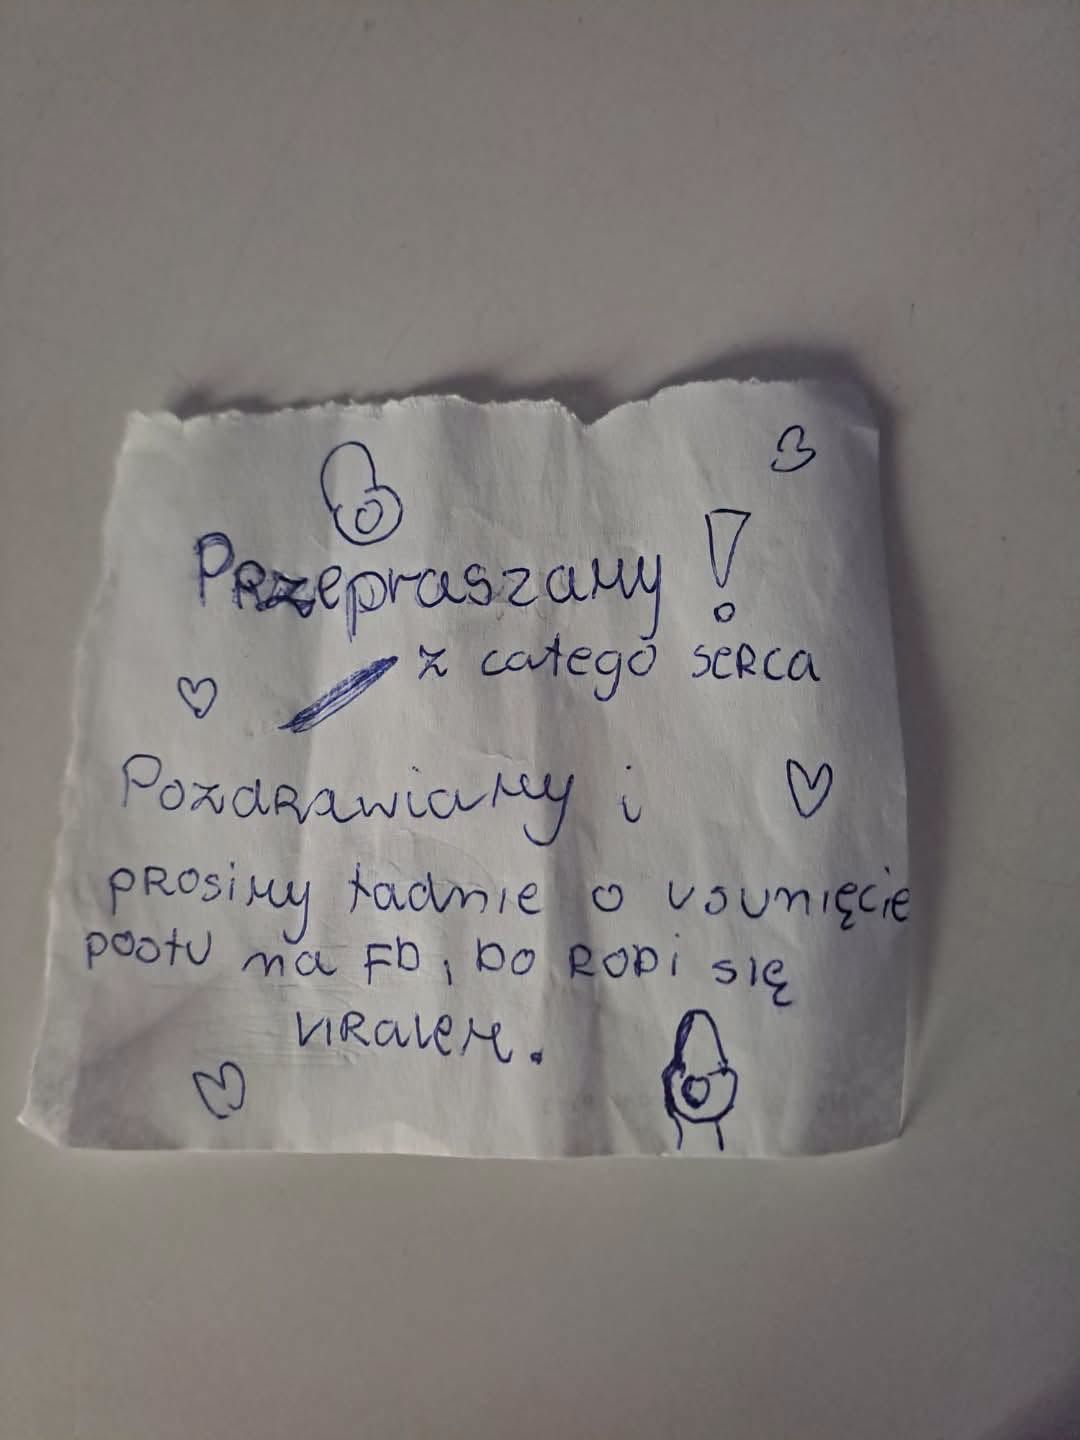 Przepraszamy!
z całego serca
Pozdrawiamy i
prosimy ładnie o usunięcie
postu na FB, bo robi się
viralem.